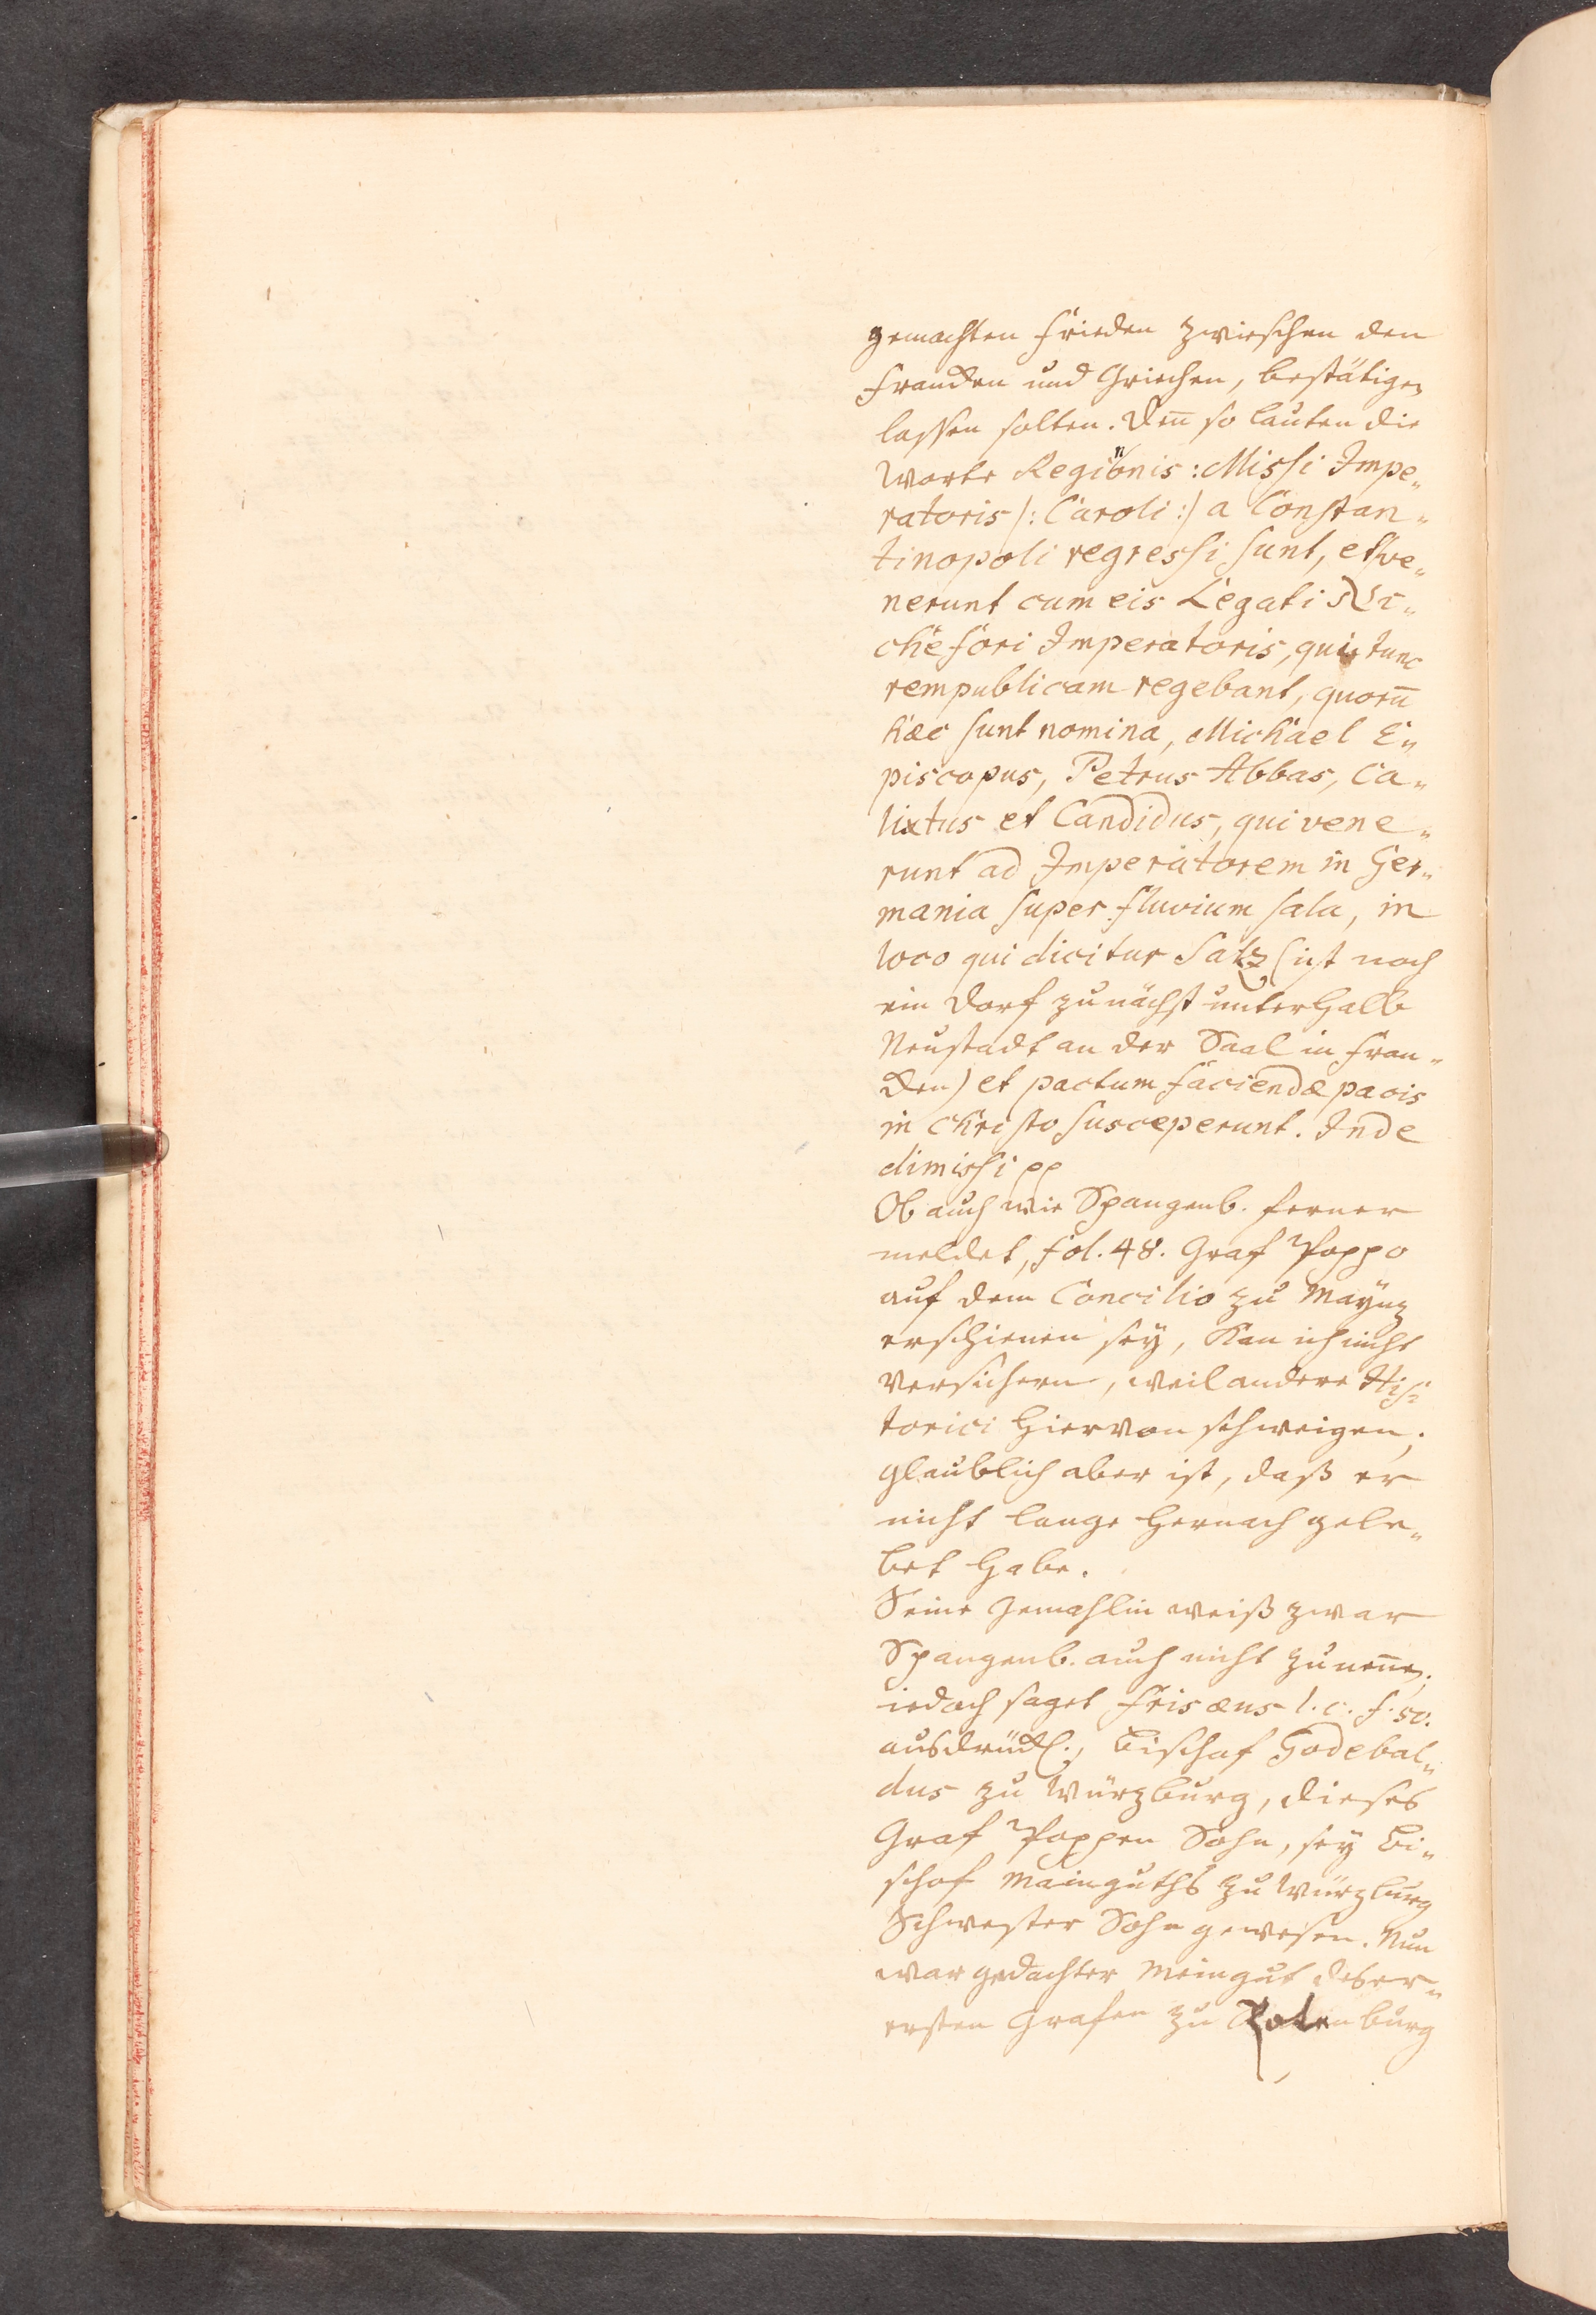 gemachten Frieden zwieschen den
Francken und Griechen, bestätigen
lassen solten. Den̄ so lauten die
Worte Reginonis: Missi Impe„
ratoris /: Caroli :/ a Constan„
tinopoli regressi sunt, et ve„
nerunt cum eis Legati Ni„
chefori Imperatoris, qui tunc
rempublicam regebant, quorū
hæc sunt nomina, Michael E„
piscopus, Petrus Abbas, Ca„
lixtus et Candidus, qui vene„
runt ad Imperatorem in Ger„
mania super fluvium sala, in
loco qui dicitur Saltz (ist noch
ein Dorf zunächst unterhalb
Neustadt an der Saal in Fran„
cken) et pactum faciendæ pacis
in Christo susceperunt. Inde
dimissi pp
Ob auch wie Spangenb. ferner
meldet, fol. 48. Graf Poppo
auf dem Concilio zu Maynz
erschienen sey, kan ich nicht
versichern, weil andere His„
torici hiervon schweigen;
glaublich aber ist, daß er
nicht lange hernach gele„
bet habe.
Seine Gemahlin weiß zwar
Spangenb. auch nicht zu nen̄en;
iedoch saget Frisæus l. c. f. 50.
ausdrückl., Bischof Godebal„
dus zu Würzburg, dieses
Graf Poppen Sohn, sey Bi„
schof Mainguths zu Würzburg
Schwester Sohn gewesen. Nun
war gedachter Meingut des er„
ersten Grafen zu Rotenburg